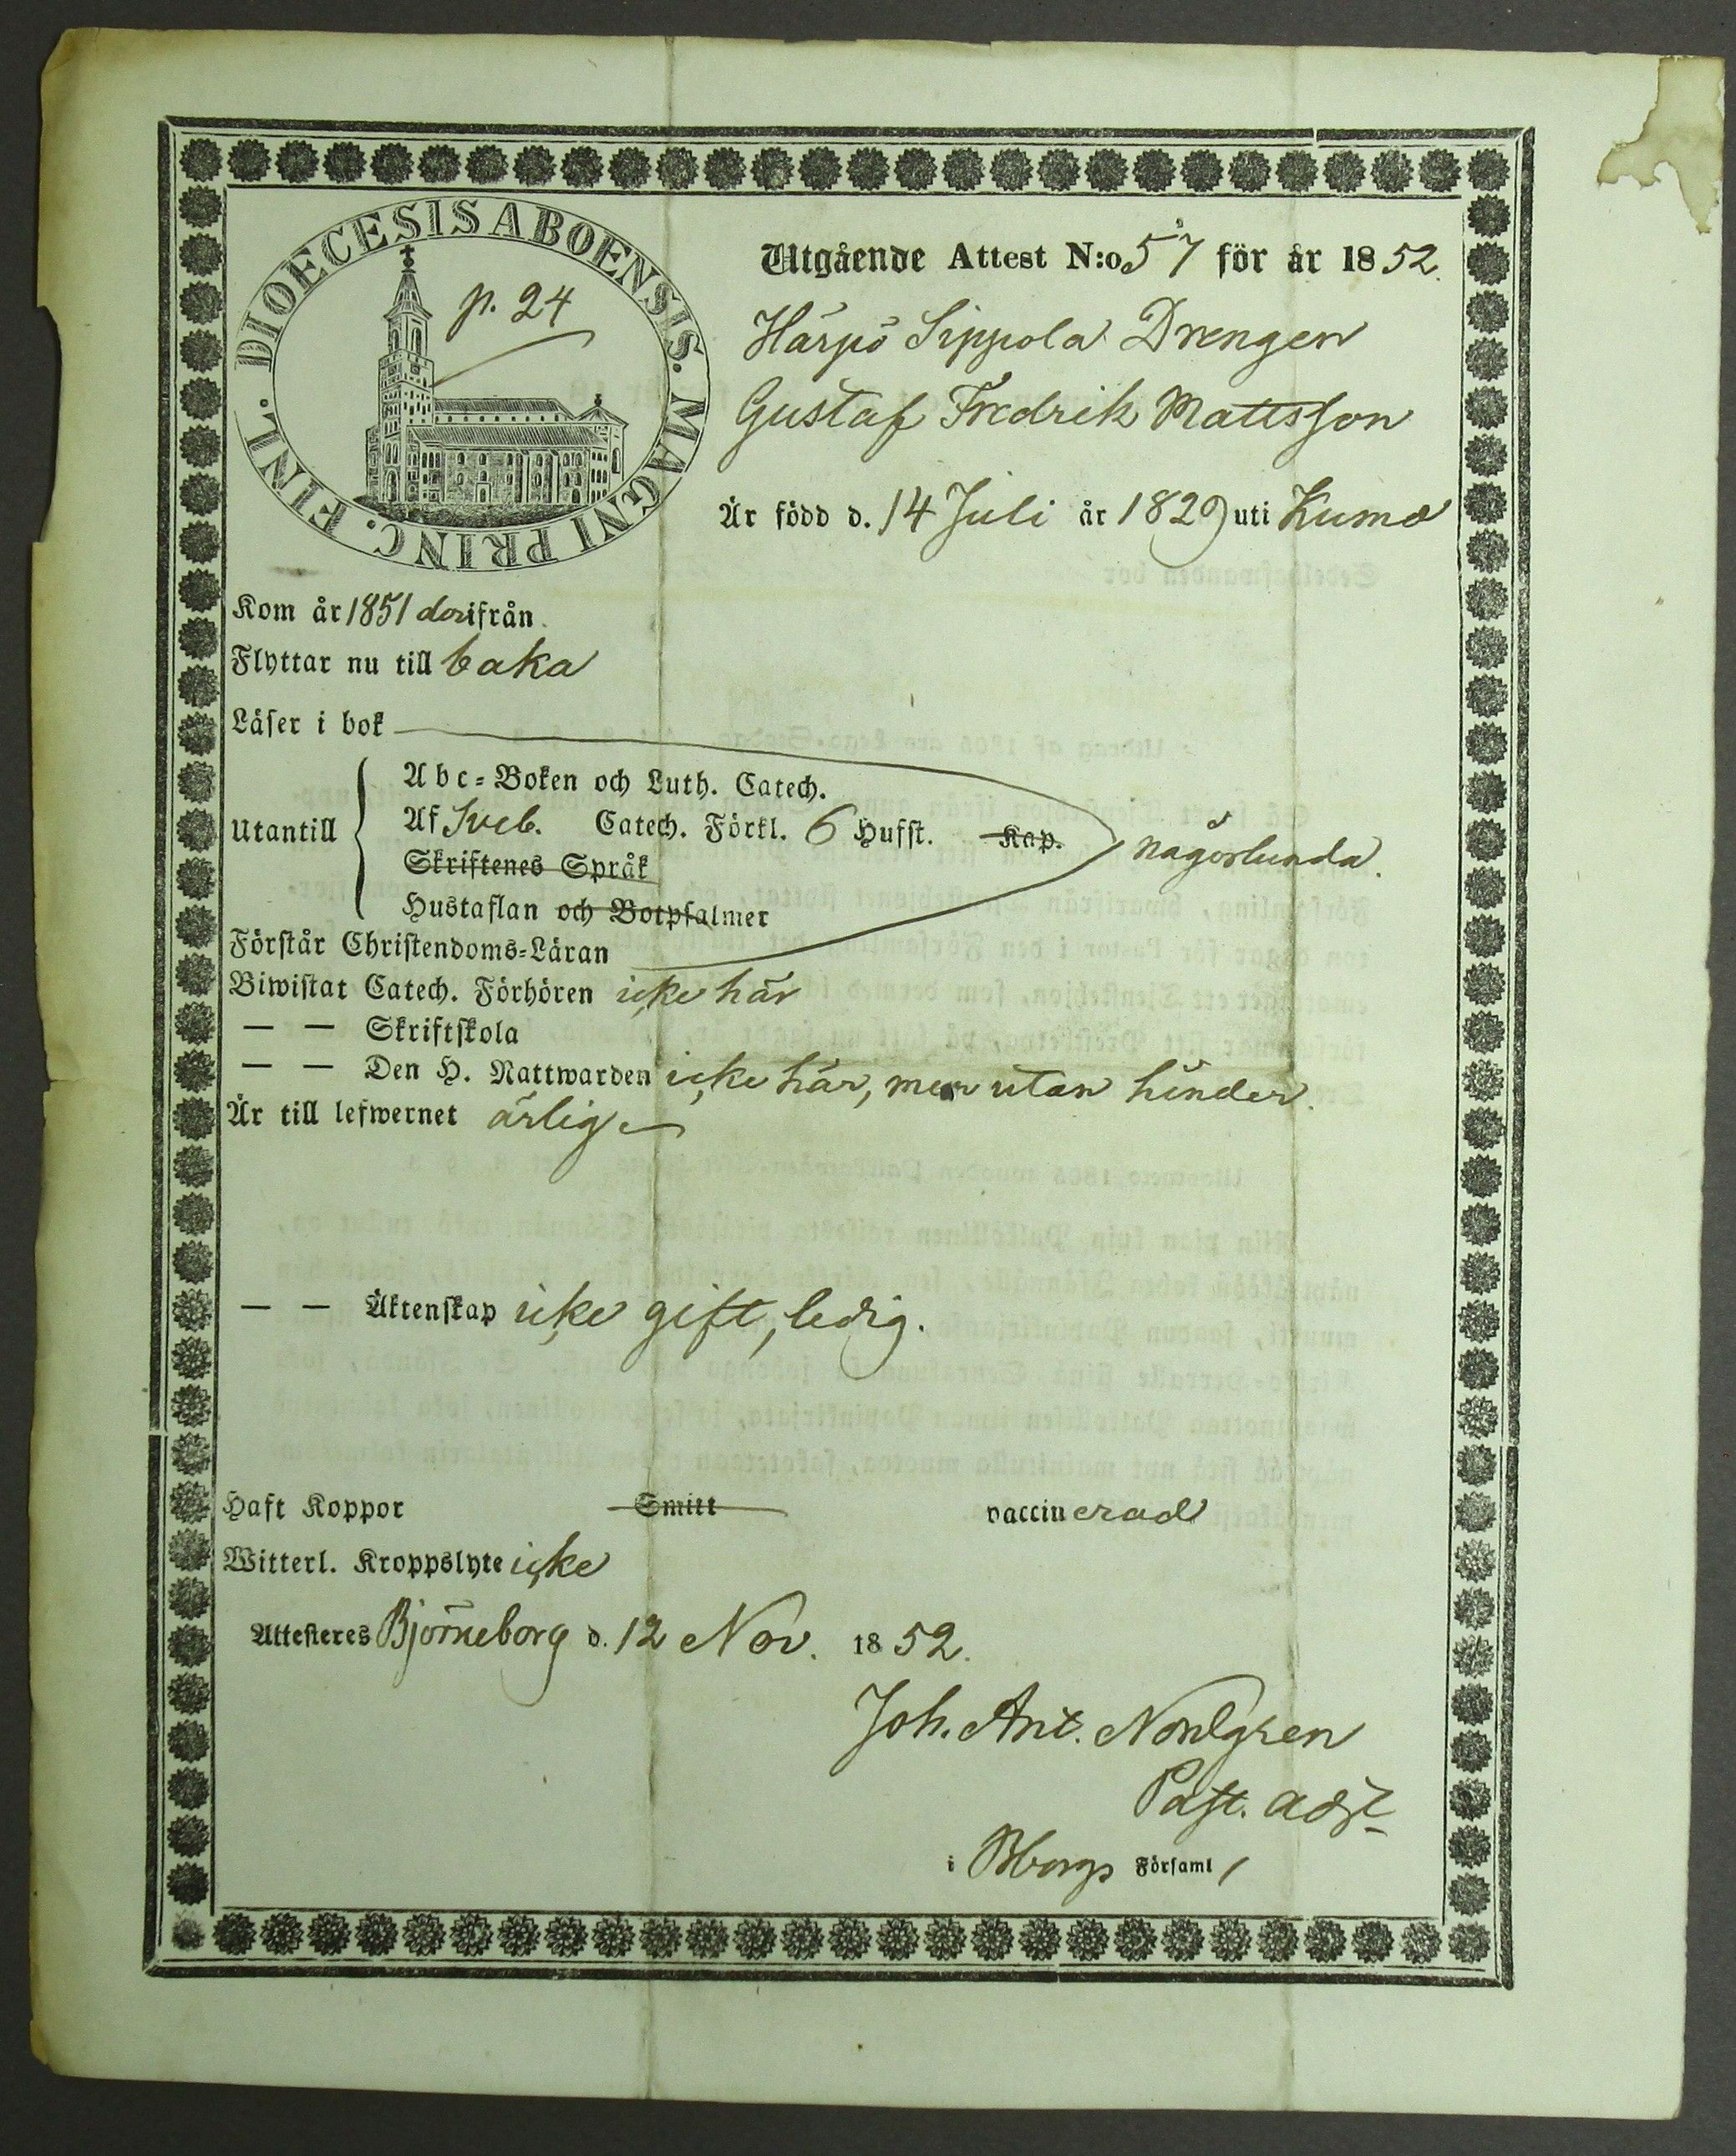 DIOECESIS ABOENSIS. MAGNI PRINC. FINL.
p. 24
Utgående Attest N:o 57 för år 1852.
Härpö Sippola Drengen
Gustaf Fredrik Mattsson
Är född d. 14 Juli år 1829 uti Kumo
Kom år 1851 derifrån
Flyttar nu till baka
Läser i bok
Utantill
Abc-Boken och Luth. Catech.
Af Sveb. Catech. Förkl. 6 Hufst. Kap.
någorlunda.
Skriftenes Språk
Hustaflan och Botpsalmer
Förstår Christendoms-Läran
Biwistat Catech. Förhören icke här
— — Skriftskola
— — Den H. Nattwarden icke här, men utan hinder.
Är till lefwernet ärlig
— — Äktenskap icke gift, ledig.
Haft Koppor Smitt vaccinerad
Witterl. Kroppslyte icke
Attesteres Björneborg d. 12 Nov. 1852.
Joh. Ant. Nordgren
Past. adj.
i Bborgs Församl